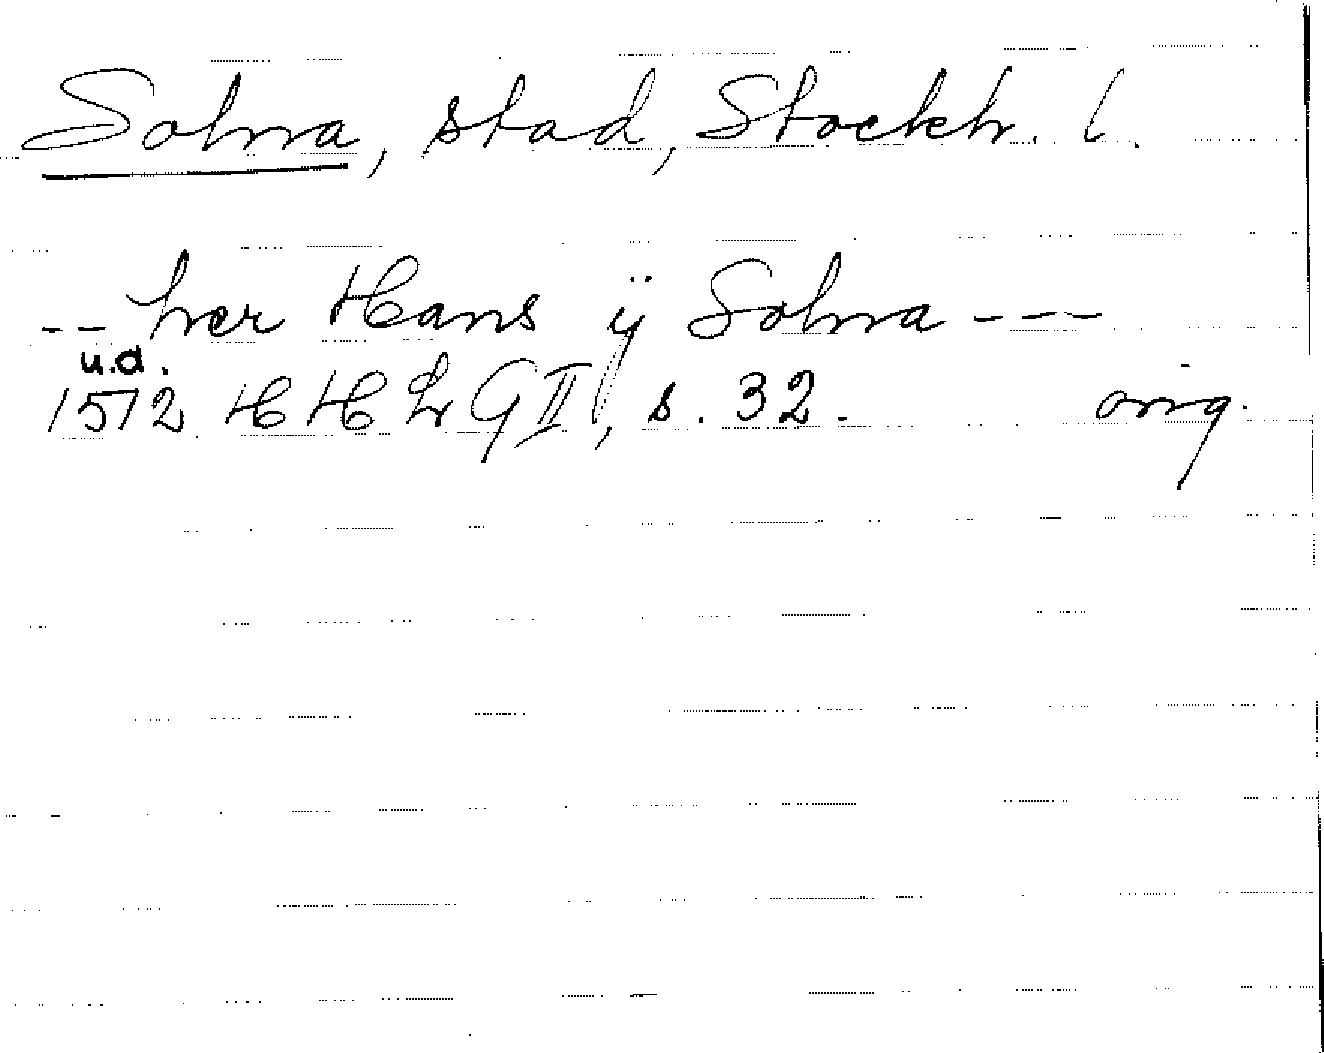 Solna, stad, Stockh. l.
-- her Hans ÿ Solna ---
u.d.
1572 HHLr G II, s. 32. orig.